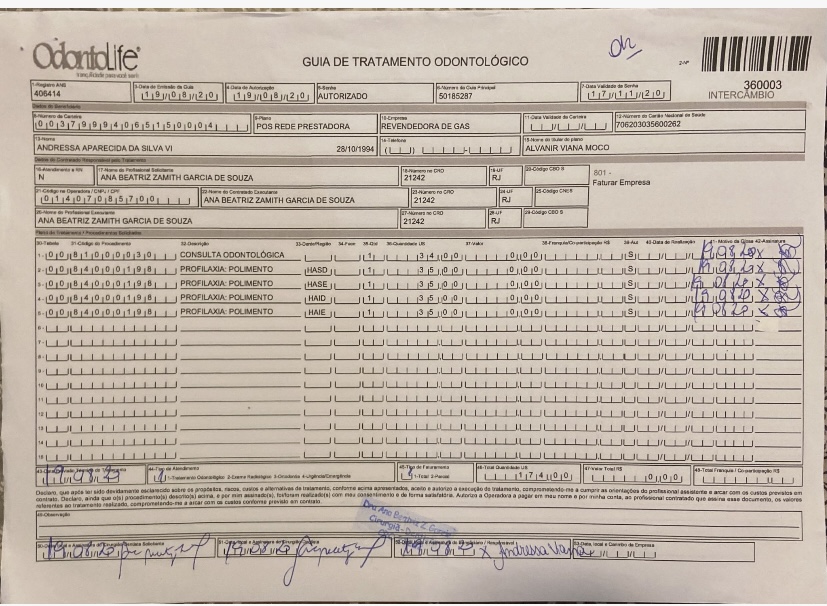 OdontoLife
tranquilidade para você sorrir
GUIA DE TRATAMENTO ODONTOLÓGICO
2-Nº
360003
INTERCÂMBIO
1-Registro ANS
406414
3-Data de Emissão da Guia
19/08/20
4-Data de Autorização
19/08/20
5-Senha
AUTORIZADO
6-Número da Guia Principal
50185287
7-Data Validade da Senha
17/11/20
Dados do Beneficiário
8-Número da Carteira
00379994065150004
9-Plano
POS REDE PRESTADORA
10-Empresa
REVENDEDORA DE GAS
11-Data Validade da Carteira
12-Número do Cartão Nacional de Saúde
706203035600262
13-Nome
ANDRESSA APARECIDA DA SILVA VI
28/10/1994
14-Telefone
15-Nome do titular do plano
ALVANIR VIANA MOCO
Dados do Contratado Responsável pelo Tratamento
16-Atendimento a RN
N
17-Nome do Profissional Solicitante
ANA BEATRIZ ZAMITH GARCIA DE SOUZA
18-Número no CRO
21242
19-UF
RJ
20-Código CBO S
801 -
Faturar Empresa
21-Código na Operadora / CNPJ / CPF
01407085700
22-Nome do Contratado Executante
ANA BEATRIZ ZAMITH GARCIA DE SOUZA
23-Número no CRO
21242
24-UF
RJ
25-Código CNES
26-Nome do Profissional Executante
ANA BEATRIZ ZAMITH GARCIA DE SOUZA
27-Número no CRO
21242
28-UF
RJ
29-Código CBO S
Plano de Tratamento / Procedimentos Solicitados
30-Tabela 31-Código do Procedimento 32-Descrição 33-Dente/Região 34-Face 35-Qtd 36-Quantidade US 37-Valor 38-Franquia/Co-participação R$ 39-Aut 40-Data de Realização 41-Motivo da Glosa 42-Assinatura
1- 00 81000030 CONSULTA ODONTOLÓGICA 1 34,00 0,00 S
2- 00 84000198 PROFILAXIA: POLIMENTO HASD 1 35,00 0,00 S
3- 00 84000198 PROFILAXIA: POLIMENTO HASE 1 35,00 0,00 S
4- 00 84000198 PROFILAXIA: POLIMENTO HAID 1 35,00 0,00 S
5- 00 84000198 PROFILAXIA: POLIMENTO HAIE 1 35,00 0,00 S
6-
7-
8-
9-
10-
11-
12-
13-
14-
15-
44-Tipo de Atendimento
1-Tratamento Odontológico 2-Exame Radiológico 3-Ortodontia 4-Urgência/Emergência
45-Tipo de Faturamento
1-Total 2-Parcial
46-Total Quantidade US
174,00
47-Valor Total R$
0,00
48-Total Franquia / Co-participação R$
Declaro, que após ter sido devidamente esclarecido sobre os propósitos, riscos, custos e alternativas de tratamento, conforme acima apresentados, aceito e autorizo a execução do tratamento, comprometendo-me a cumprir as orientações do profissional assistente e arcar com os custos previstos em
contrato. Declaro, ainda que o(s) procedimento(s) descrito(s) acima, e por mim assinado(s), foi/foram realizado(s) com meu consentimento e de forma satisfatória. Autorizo a Operadora a pagar em meu nome e por minha conta, ao profissional contratado que assina esse documento, os valores
referentes ao tratamento realizado, comprometendo-me a arcar com os custos conforme previsto em contrato.
49-Observação
53-Data, local e Carimbo da Empresa